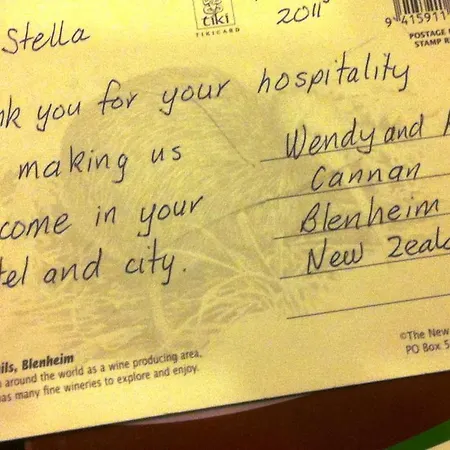 tiki
TIKICARD
2011
9 415911
POSTAGE
STAMP
Stella
you for your hospitality
making us
in your
and city.
Wendy and
Cannan
Blenheim
New
Blenheim
around the world as a wine producing area,
has many fine wineries to explore and enjoy.
©The New
PO Box 5